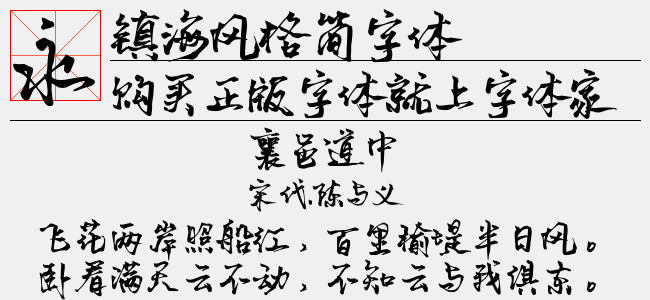 永
镇海风格简字体
购买正版字体就上字体家
襄邑道中
宋代.陈与义
飞花两岸照船红，百里榆堤半日风。
卧看满天云不动，不知云与我俱东。